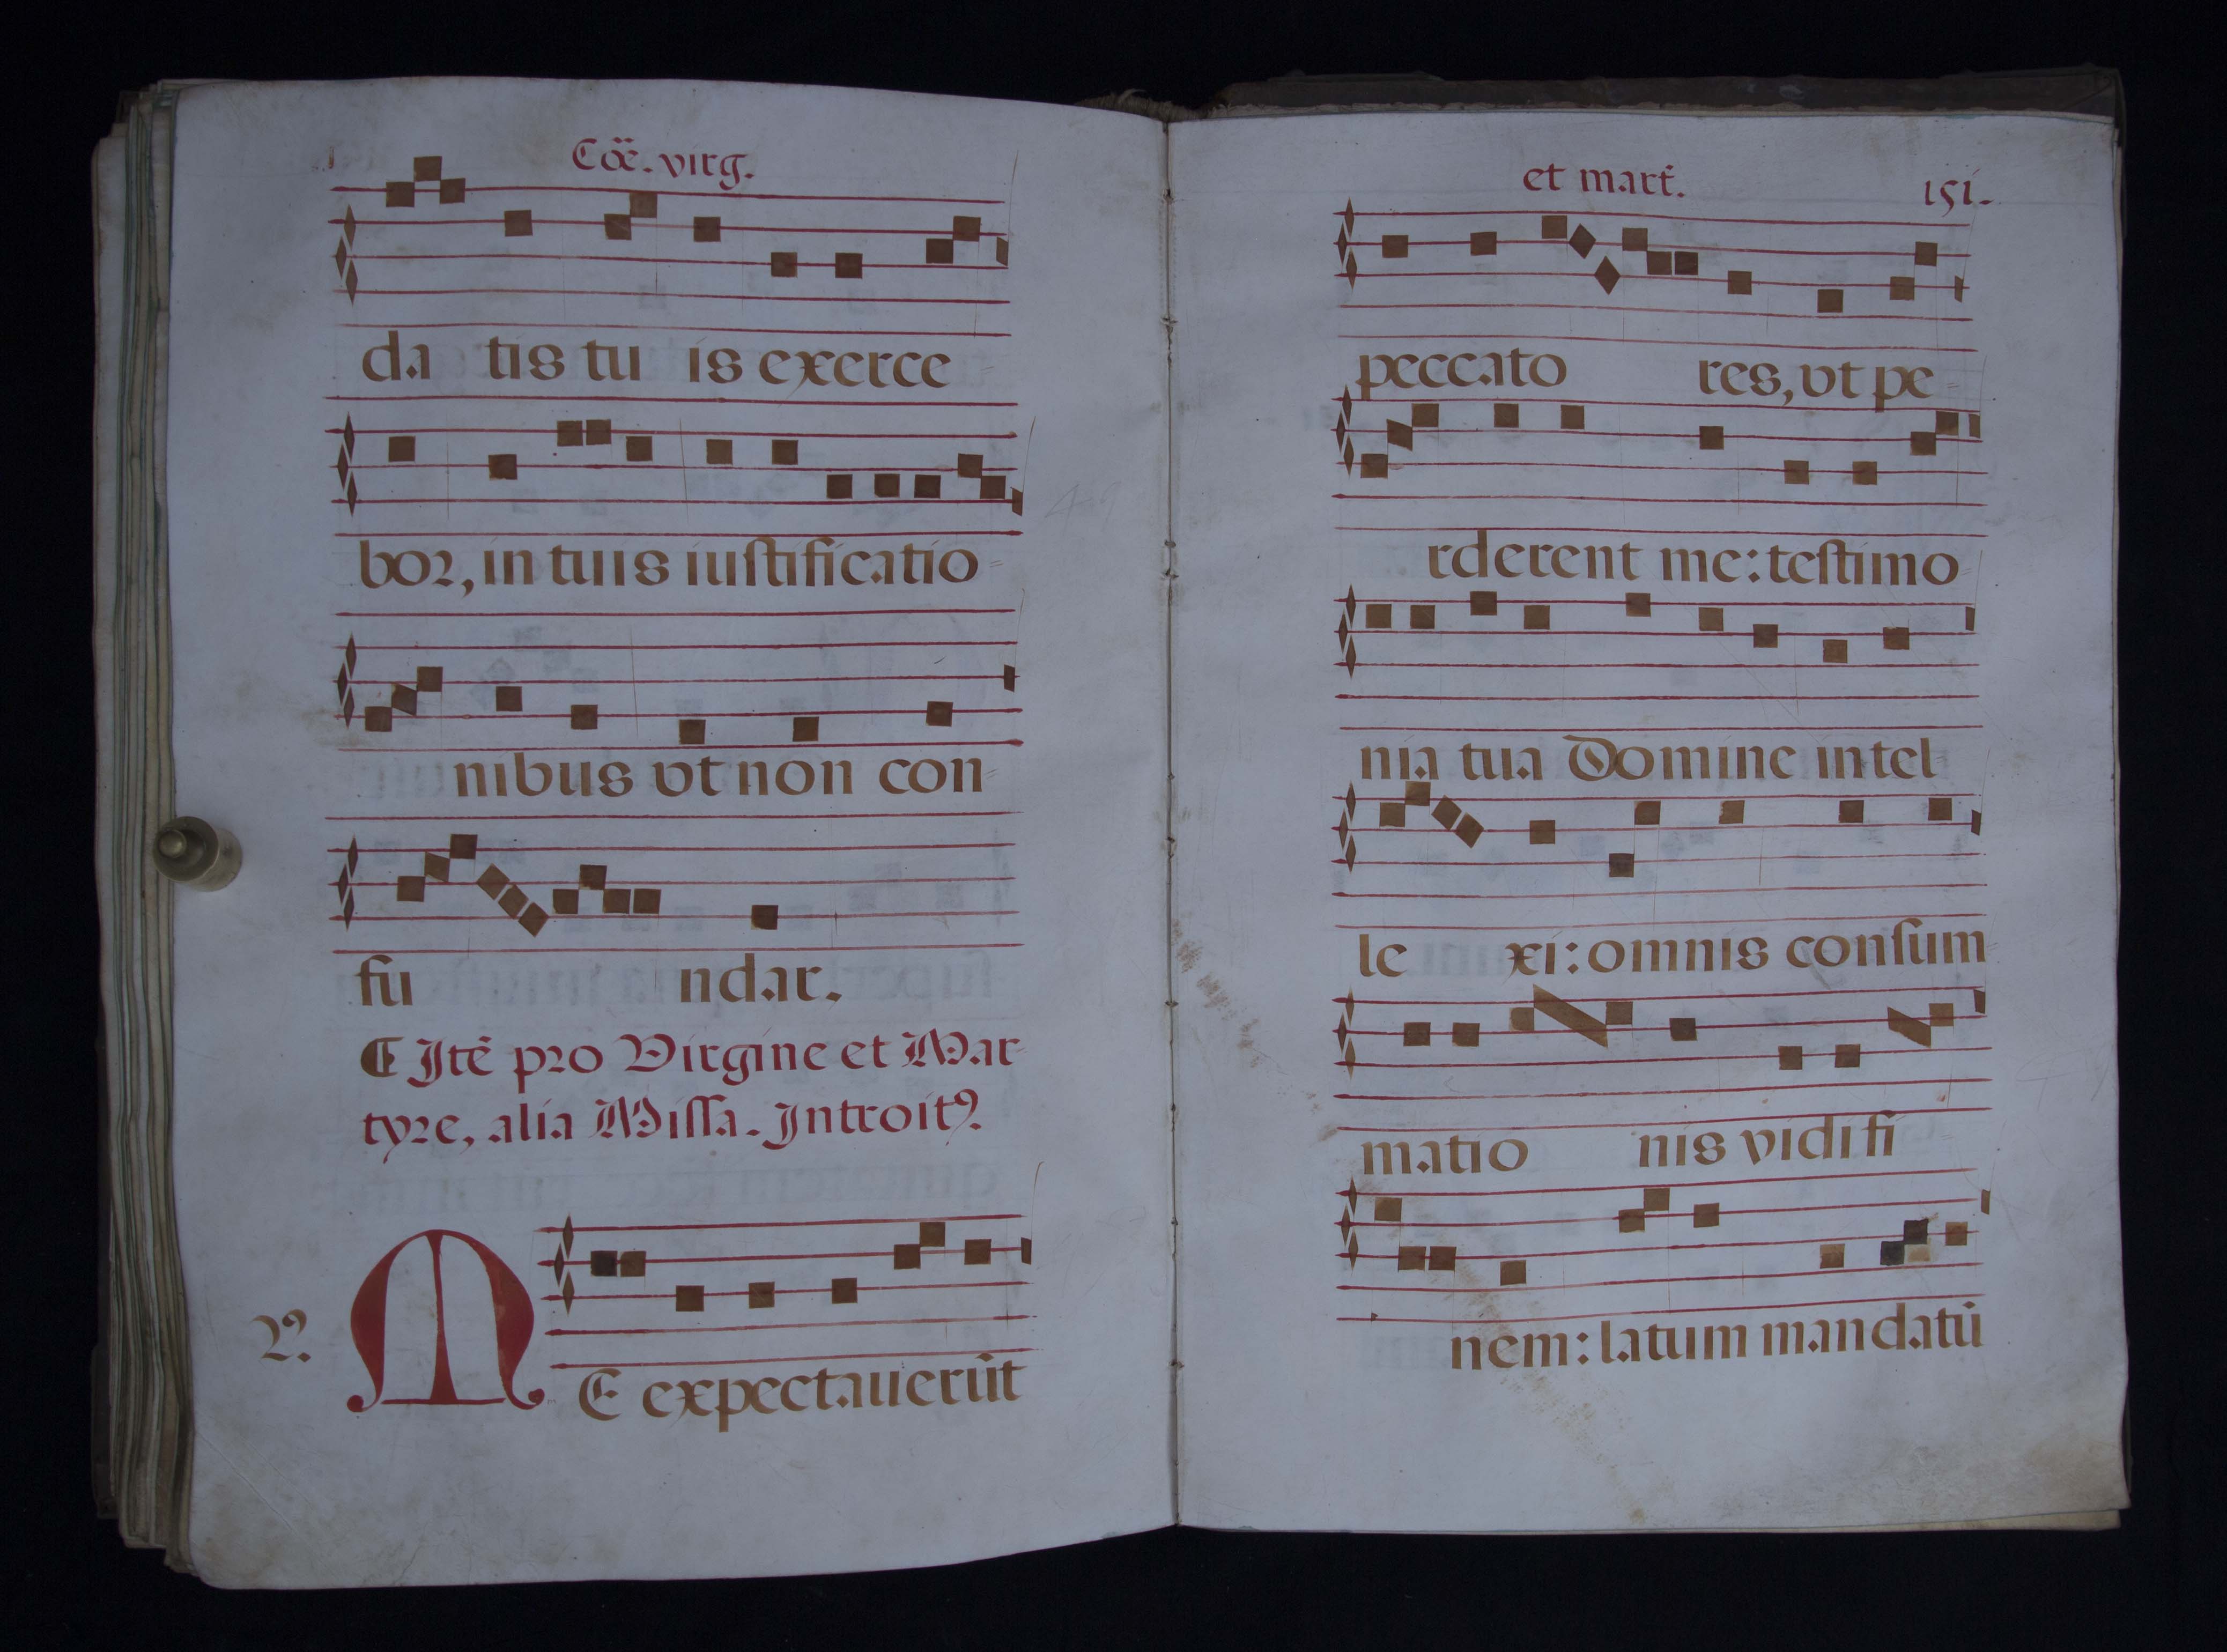 Cōe. virg.
da tis tu is exerce
bor, in tuis iustificatio
nibus vt non con
fu ndar.
Itē pro Virgine et Mar
tyre, alia Missa. Introitꝰ.
2.
ME expectauerūt
et mart. 151.
peccato res, vt pe
rderent me: testimo
nia tua Domine intel
le xi: omnis consum
matio nis vidi fi
nem: latum mandatū